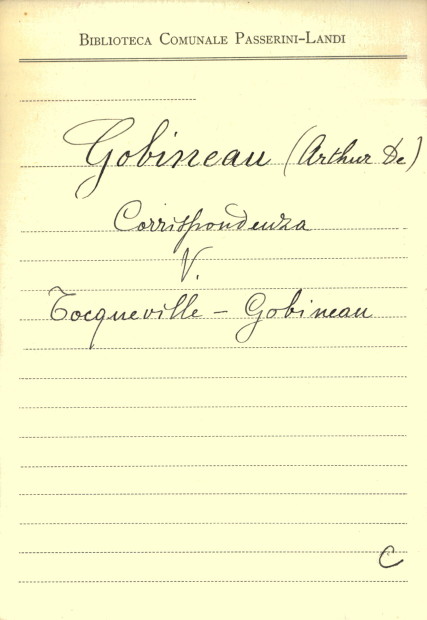 BIBLIOTECA COMUNALE PASSERINI-LANDI
Gobineau (Arthur De)
Corrispondenza
V.
Tocqueville - Gobineau
C